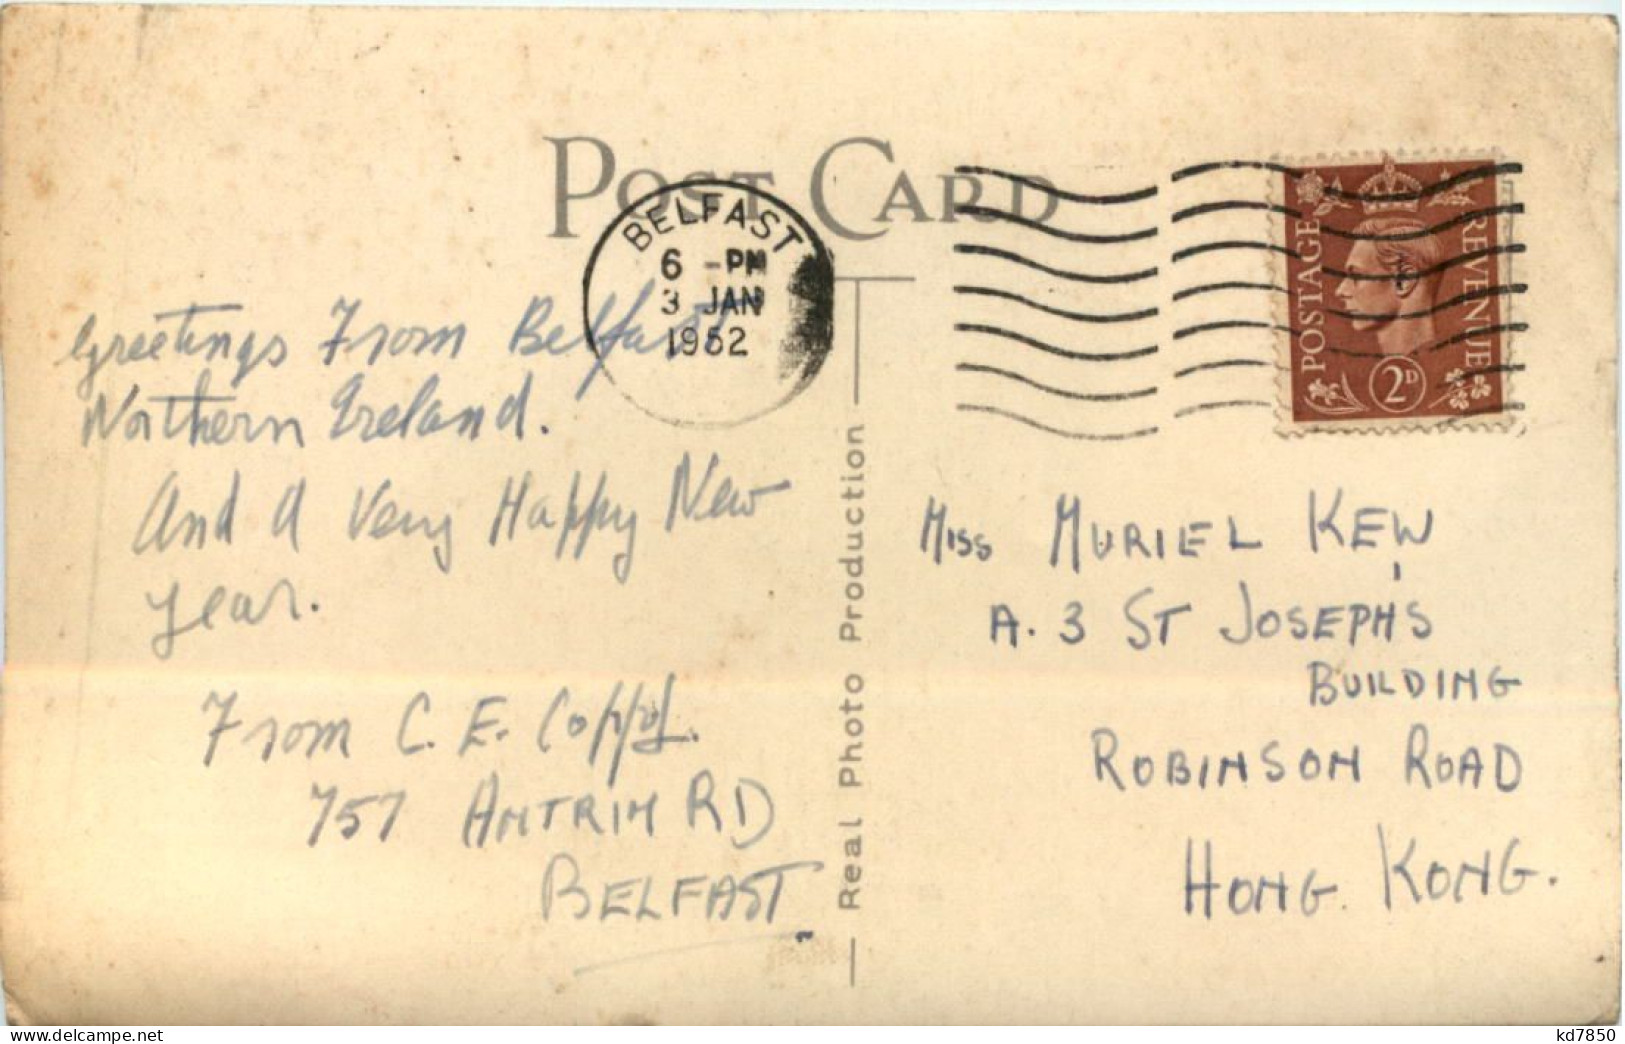 POST CARD
BELFAST
6 - PM
3 JAN
1952
POSTAGE
REVENUE
2D
Greetings From Belfast
Northern Ireland.
And A Very Happy New
Year.
From C. E.
757 ANTRIM RD
BELFAST
Real Photo Production
MISS MURIEL KEW
A. 3 ST JOSEPH'S
BUILDING
ROBINSON ROAD
HONG KONG.
delcampe.net
kd7850